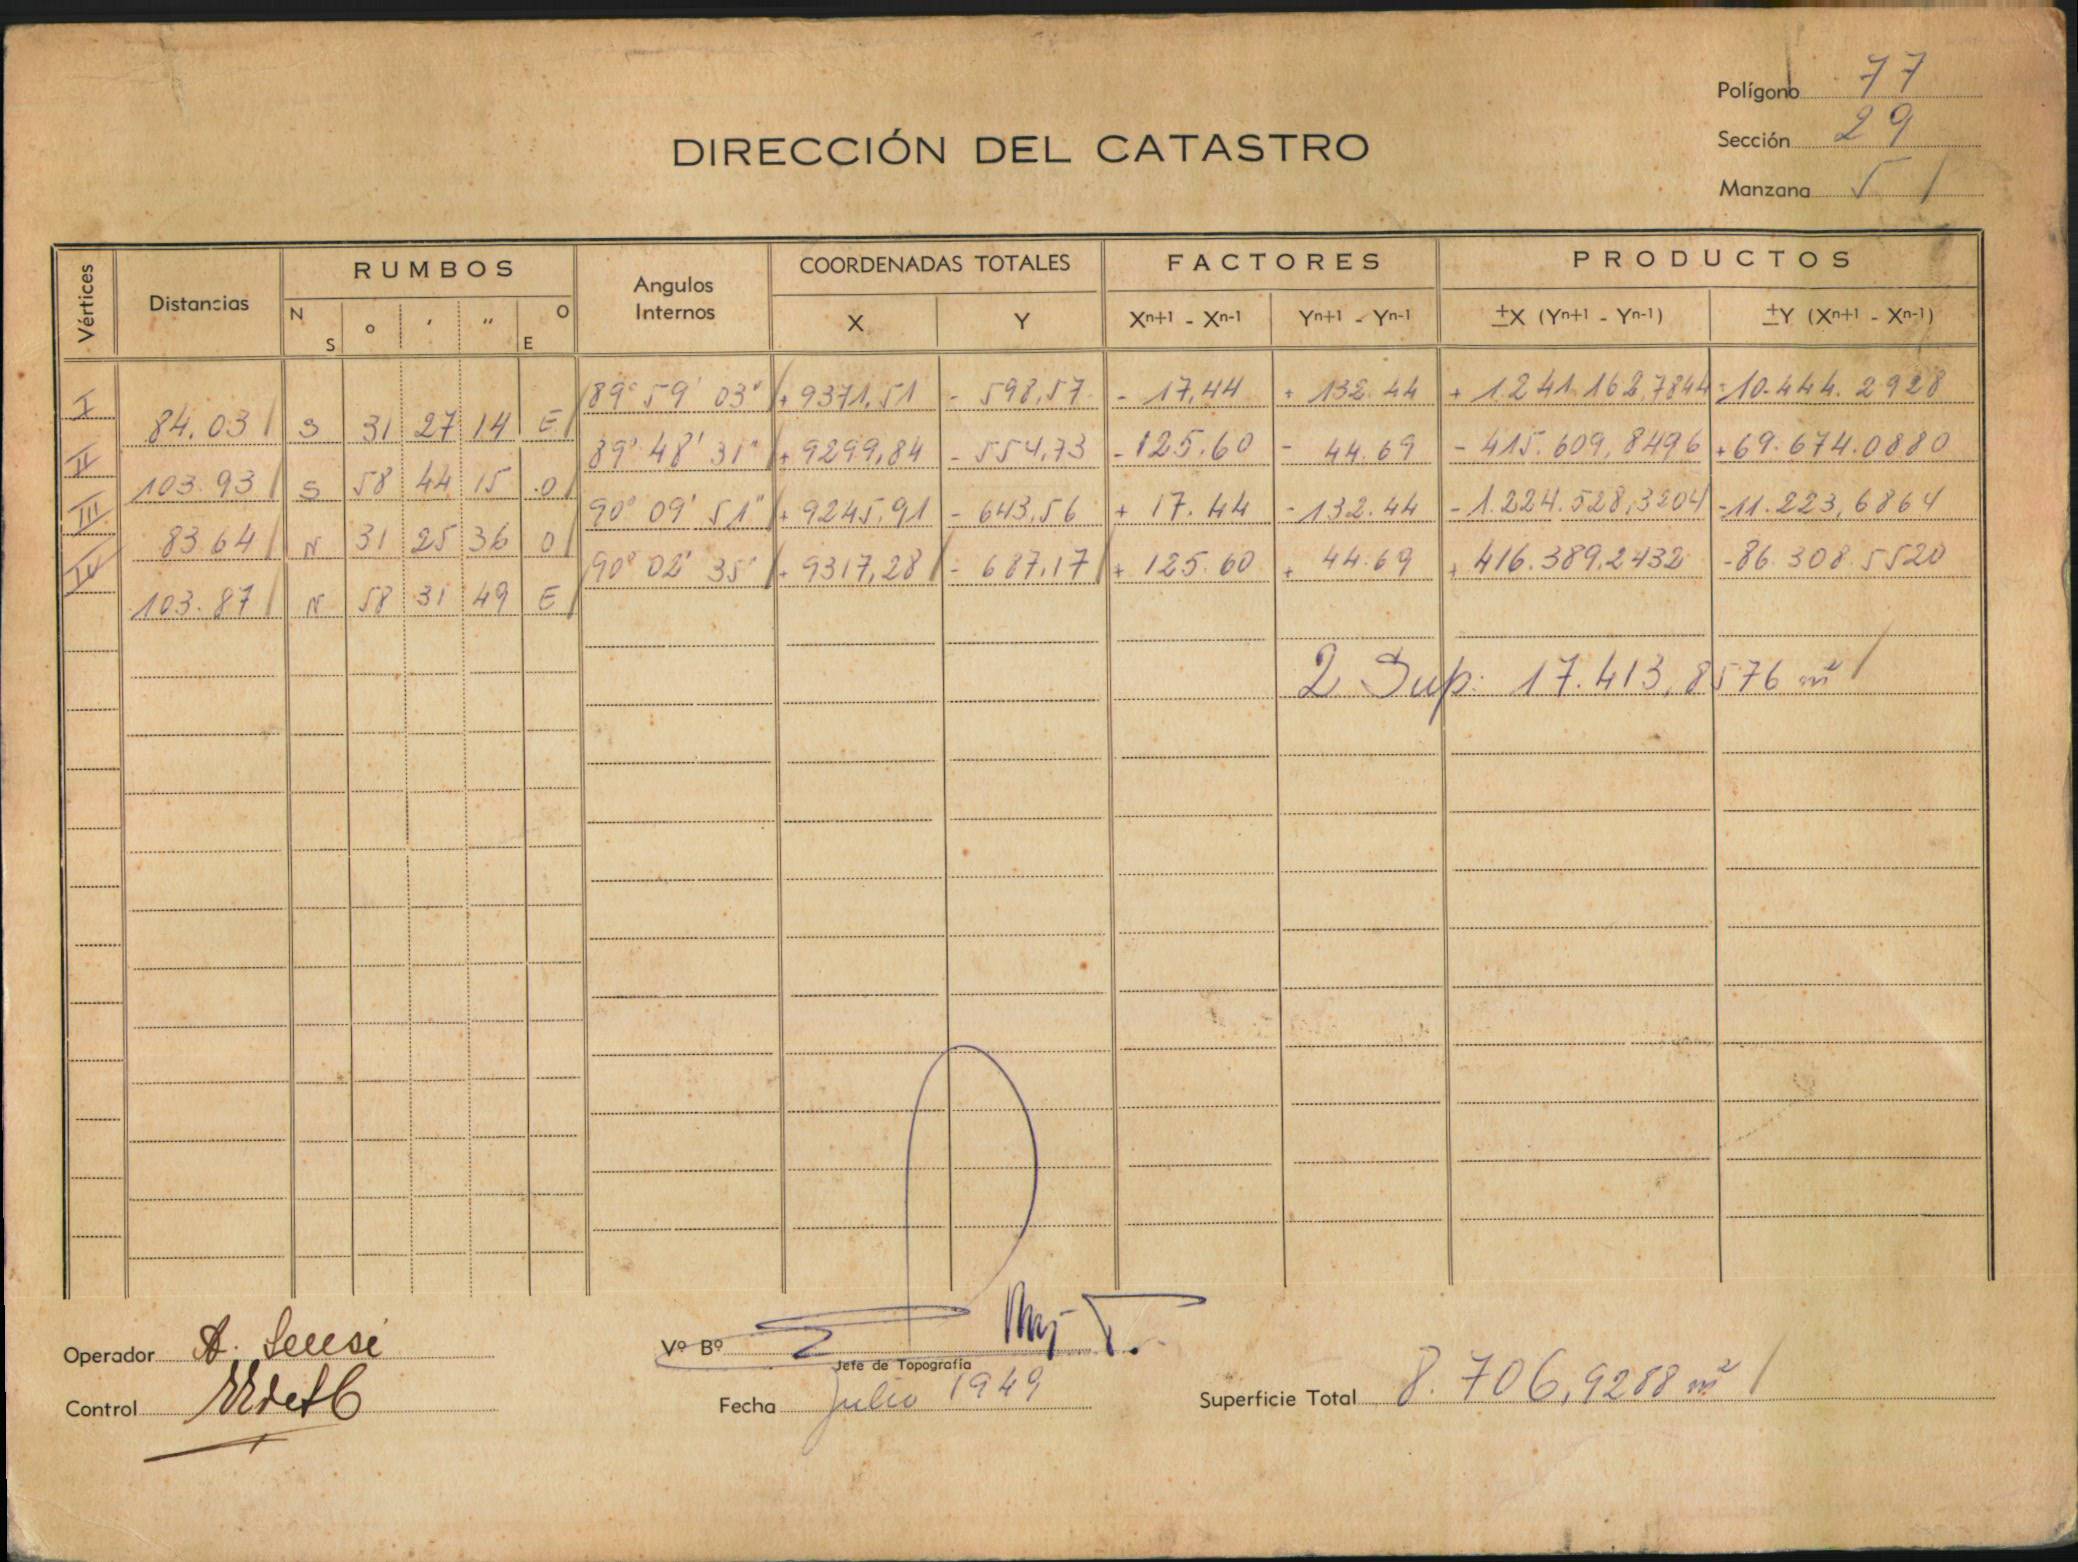 Polígono 77
Sección 29
Manzana 51
DIRECCIÓN DEL CATASTRO
Vértices Distancias RUMBOS Angulos Internos COORDENADAS TOTALES FACTORES PRODUCTOS
N S o ' " O E X Y Xn+1 - Xn-1 Yn+1 - Yn-1 ±X (Yn+1 - Yn-1) ±Y (Xn+1 - Xn-1)
I 89° 59' 03" + 9371,51 - 598,57 - 17,44 + 132.44 + 1.241.162,7844 - 10.444.2928
84.03 S 31 27 14 E
II 89° 48' 31" + 9299,84 - 554,73 - 125.60 - 44.69 - 415.609,8496 + 69.674.0880
103.93 S 58 44 15 O
III 90° 09' 51" + 9245,91 - 643,56 + 17.44 - 132.44 - 1.224.528,3204 - 11.223,6864
83.64 N 31 25 36 O
IV 90° 02' 35" + 9317,28 - 687,17 + 125.60 + 44.69 + 416.389,2432 - 86.308.5520
103.87 N 58 31 49 E
2 Sup: 17.413,8576 m²
Operador A. Sensi
Vº Bº
Jefe de Topografía
Control
Fecha Julio 1949
Superficie Total 8.706,9288 m²